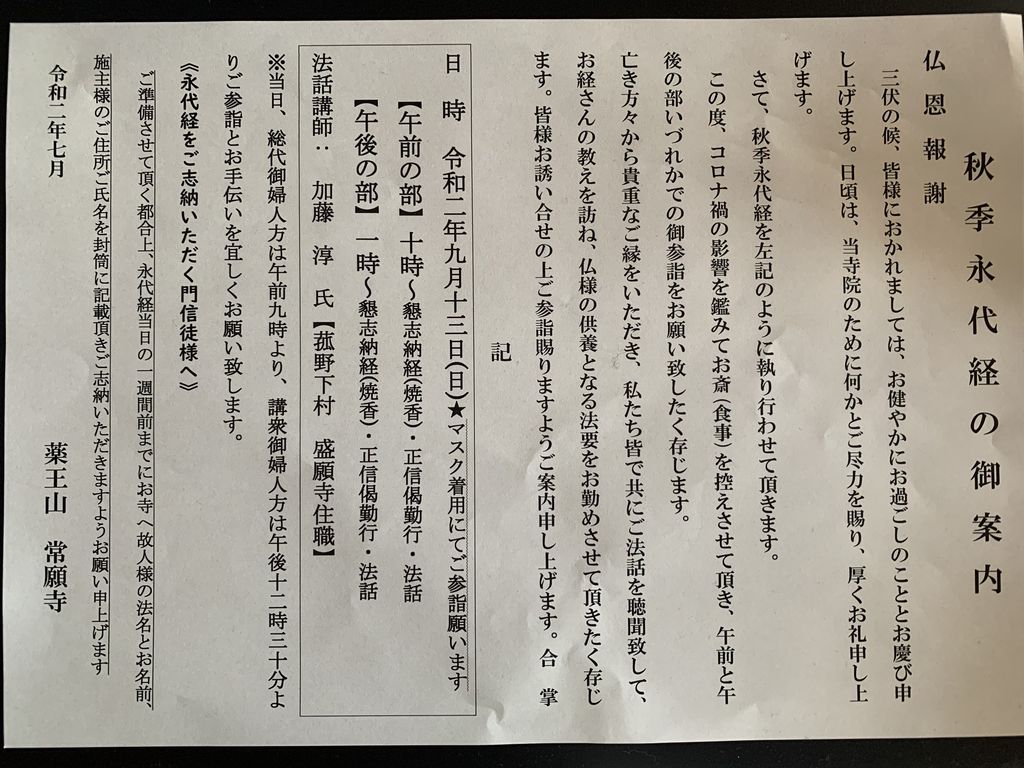 秋季永代経の御案内
仏恩報謝
三伏の候、皆様におかれましては、お健やかにお過ごしのこととお慶び申
し上げます。日頃は、当寺院のために何かとご尽力を賜り、厚くお礼申し上
げます。
さて、秋季永代経を左記のように執り行わせて頂きます。
この度、コロナ禍の影響を鑑みてお斎(食事)を控えさせて頂き、午前と午
後の部いづれかでの御参詣をお願い致したく存じます。
亡き方々から貴重なご縁をいただき、私たち皆で共にご法話を聴聞致して、
お経さんの教えを訪ね、仏様の供養となる法要をお勤めさせて頂きたく存じ
ます。皆様お誘い合せの上ご参詣賜りますようご案内申し上げます。合 掌
記
日 時 令和二年九月十三日(日)★マスク着用にてご参詣願います
【午前の部】十時〜懇志納経(焼香)・正信偈勤行・法話
【午後の部】一時〜懇志納経(焼香)・正信偈勤行・法話
法話講師： 加藤 淳 氏【菰野下村 盛願寺住職】
※当日、総代御婦人方は午前九時より、講衆御婦人方は午後十二時三十分よ
りご参詣とお手伝いを宜しくお願い致します。
《永代経をご志納いただく門信徒様へ》
ご準備させて頂く都合上、永代経当日の一週間前までにお寺へ故人様の法名とお名前、
施主様のご住所ご氏名を封筒に記載頂きご志納いただきますようお願い申上げます
令和二年七月
薬王山 常願寺